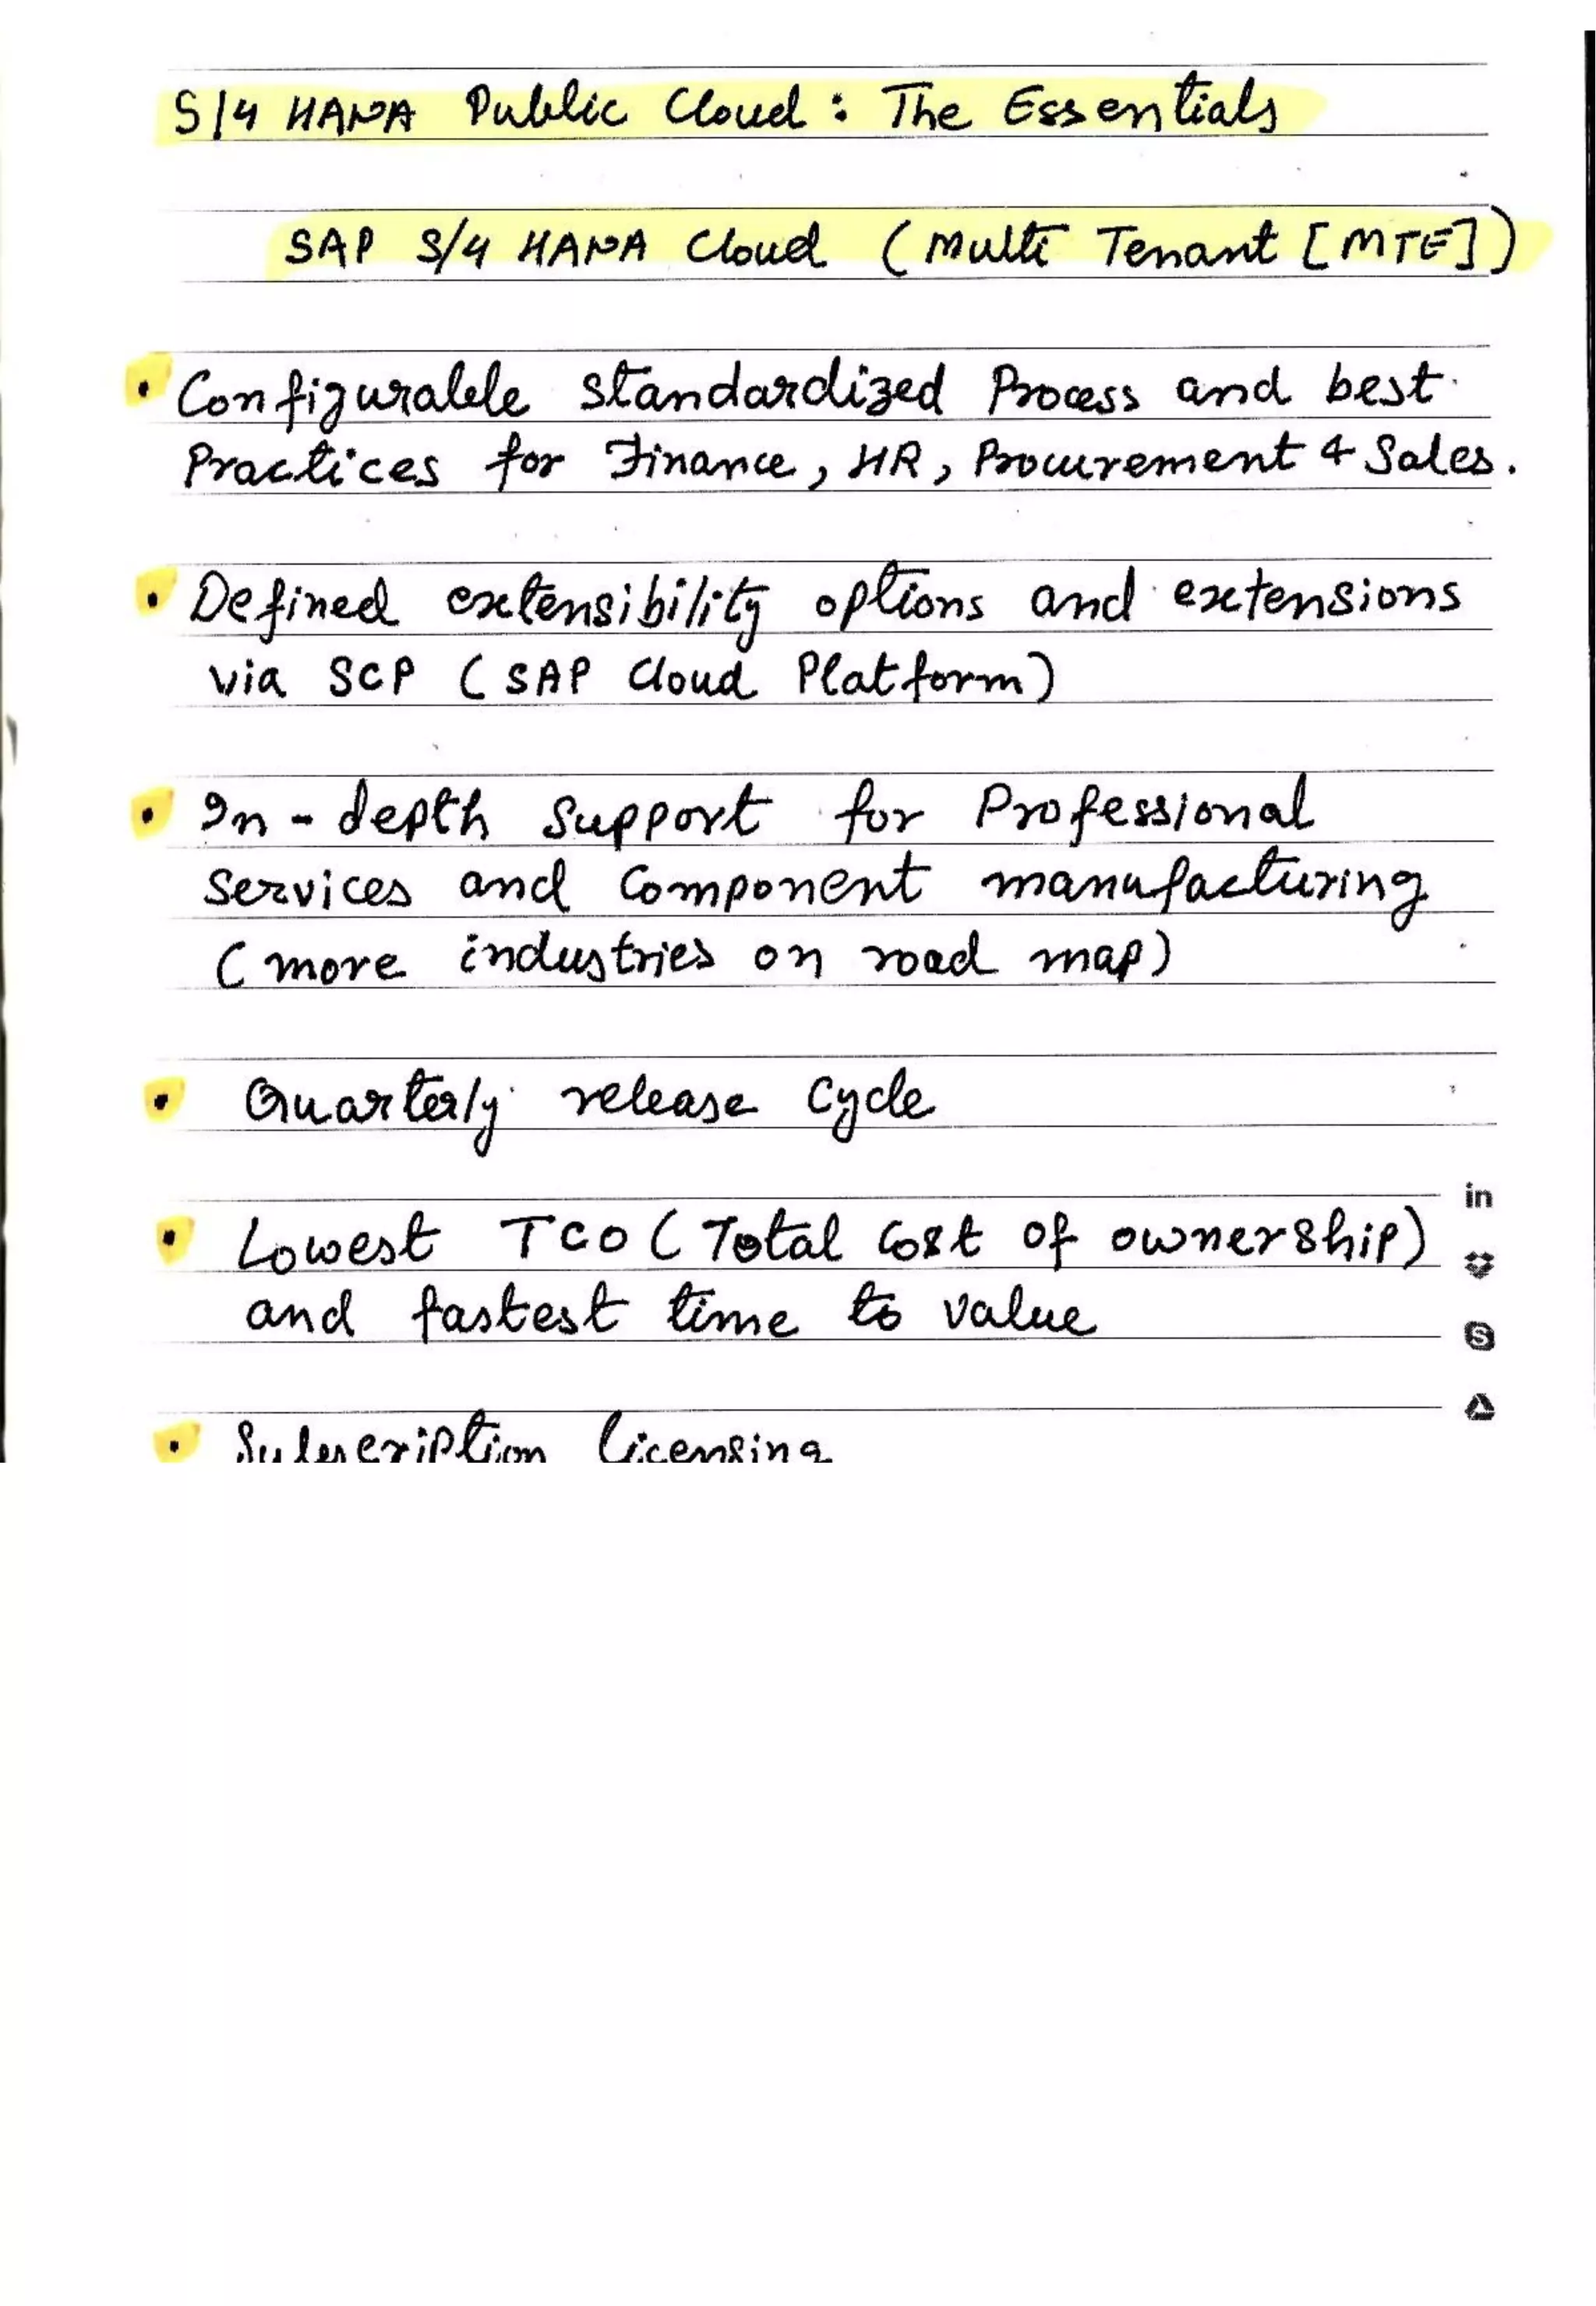 S/4 HANA Public Cloud : The Essentials
SAP S/4 HANA Cloud (Multi Tenant [MTE])
• Configurable standardized Process and best
Practices for Finance, HR, Procurement & Sales.
• Defined extensibility options and extensions
via SCP (SAP Cloud Platform)
• In-depth Support for Professional
Services and Component manufacturing
(more industries on road map)
• Quarterly release Cycle
in
• Lowest TCO (Total Cost of ownership)
and fastest time to value
• Subscription licensing